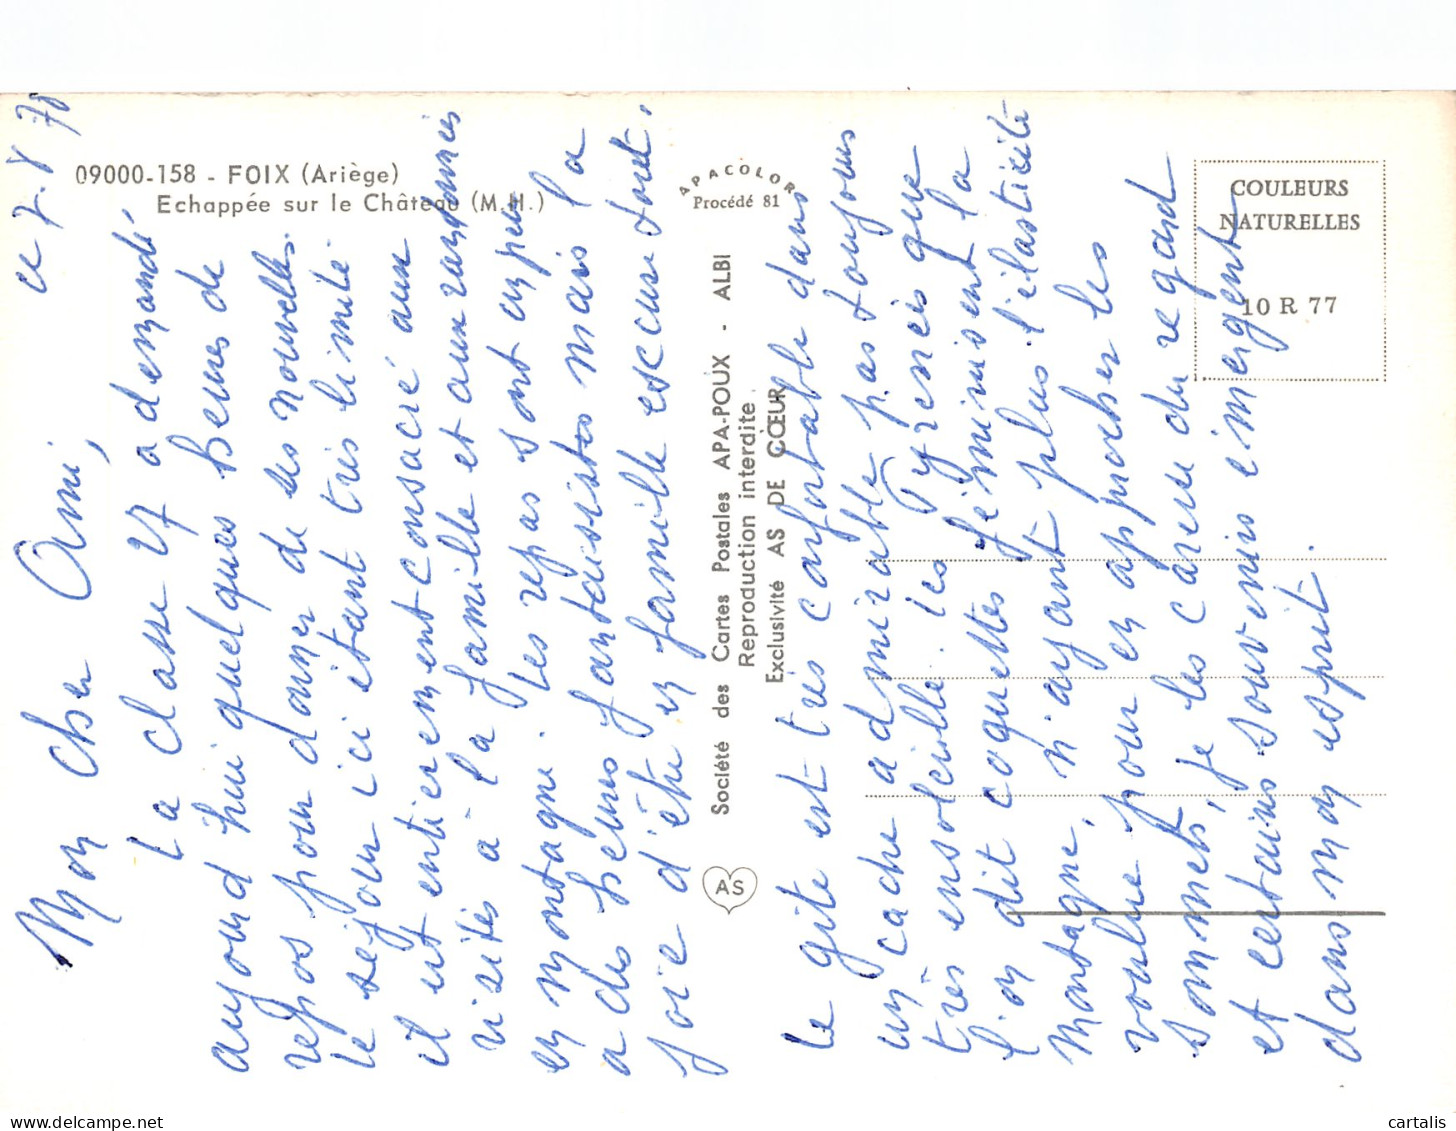 09000-158 - FOIX (Ariège)
Echappée sur le Château (M.H.)
APACOLOR
Procédé 81
COULEURS
NATURELLES
10 R 77
Société des Cartes Postales APA-POUX - ALBI
Reproduction interdite
Exclusivité AS DE CŒUR
AS
ce 7.8 78
Mon cher Ami,
La classe 27 a demandé
aujourd'hui quelques heures de
repos pour donner de ses nouvelles.
Le séjour ici étant très limité
il est entièrement consacré aux
visites à la famille et aux randonnées
en montagne. Les repas sont un peu
à des heures fantaisistes mais la
joie d'être en famille excuse tout.
Le gîte est très confortable dans
un cache admirable pas toujours
très ensoleillé. Les Pyrénées que
l'on dit coquettes féminisent la
montagne, n'ayant plus l'élasticité
voulue pour en approcher les
sommets, je les caresse du regard
et certains souvenirs émergent
dans mon esprit.
cartalis
www.delcampe.net